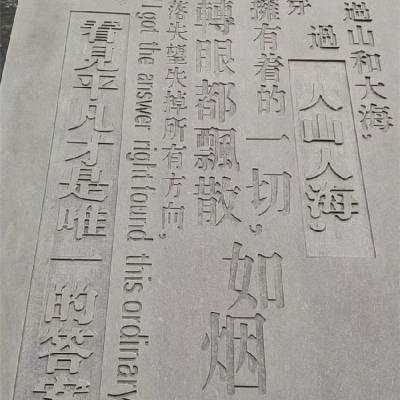 過山和大海,
穿過
人山人海,
擁有着的一切,
轉眼都飄散
如烟
落失望失掉所有方向,
I got the answer right found this ordinary
看見平凡才是唯一的答